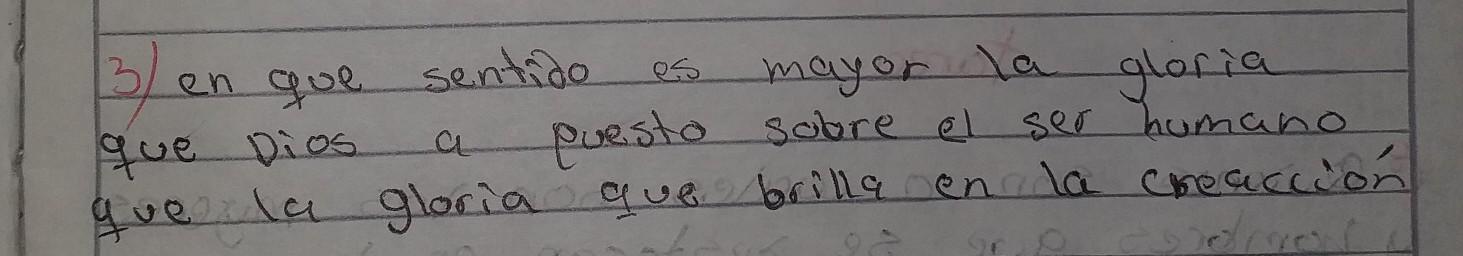 3) en que sentido es mayor la gloria
que Dios a puesto sobre el ser humano
que la gloria que brilla en la creacción